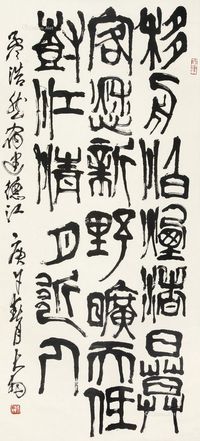 移舟泊煙渚日暮
客愁新野曠天低
樹江清月近人
孟浩然宿建德江 庚午春月大羽